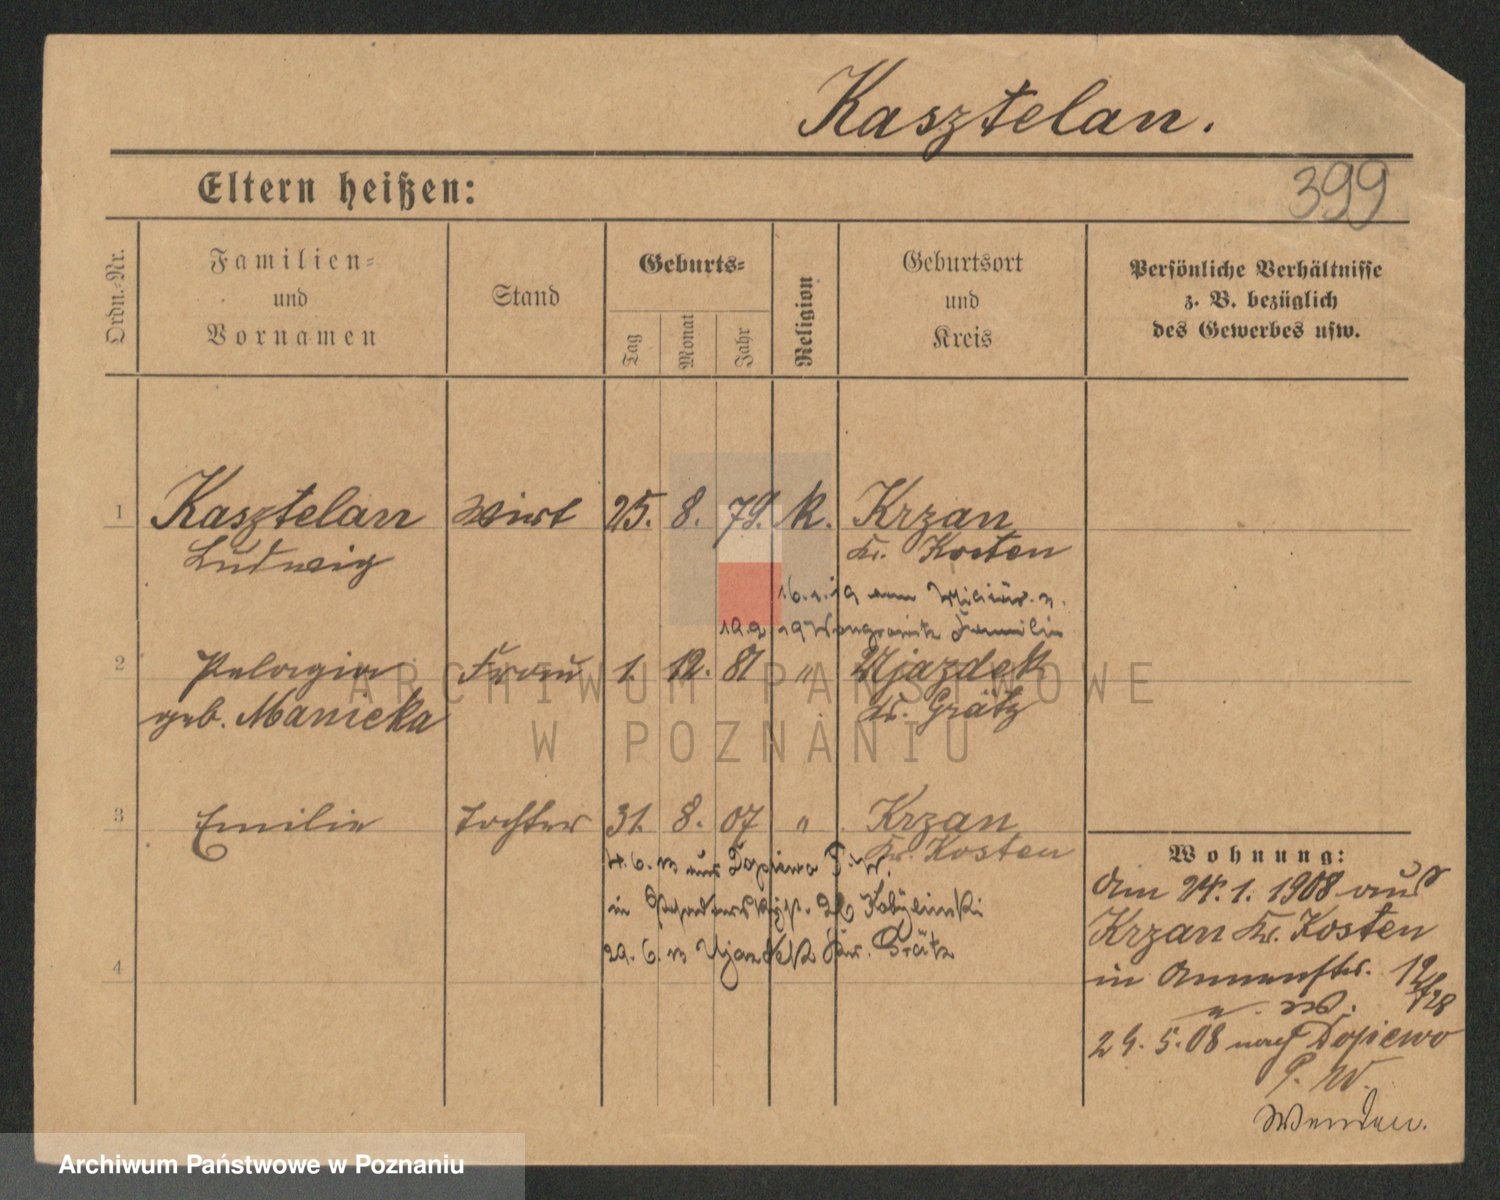 Kasztelan.
Eltern heißen:
399
Ordn.-Nr.
Familien-
und
Vornamen
Stand
Geburts-
Tag
Monat
Jahr
Religion
Geburtsort
und
Kreis
Persönliche Verhältnisse
z. B. bezüglich
des Gewerbes usw.
1 Kasztelan Wirt 25. 8. 79. K. Krzan
Ludwig Kr. Kosten
16.1.19 vom Militär
19 Wongrowitz Familie
2 Pelagia Frau 1. 12. 81 " Ujazdek
geb. Manicka Kr. Grätz
3 Emilie Tochter 31. 8. 07 " Krzan
Kr. Kosten
4.6.13 aus Dopiewo P. W.
in Kobylinski
29.6.13 Ujazdek Kr. Grätz
4
Wohnung:
Am 24.1.1908 aus
Krzan Kr. Kosten
in Annenstr. 12
29.5.08 nach Dopiewo
P. W.
Wenden.
ARCHIWUM PAŃSTWOWE
W POZNANIU
Archiwum Państwowe w Poznaniu